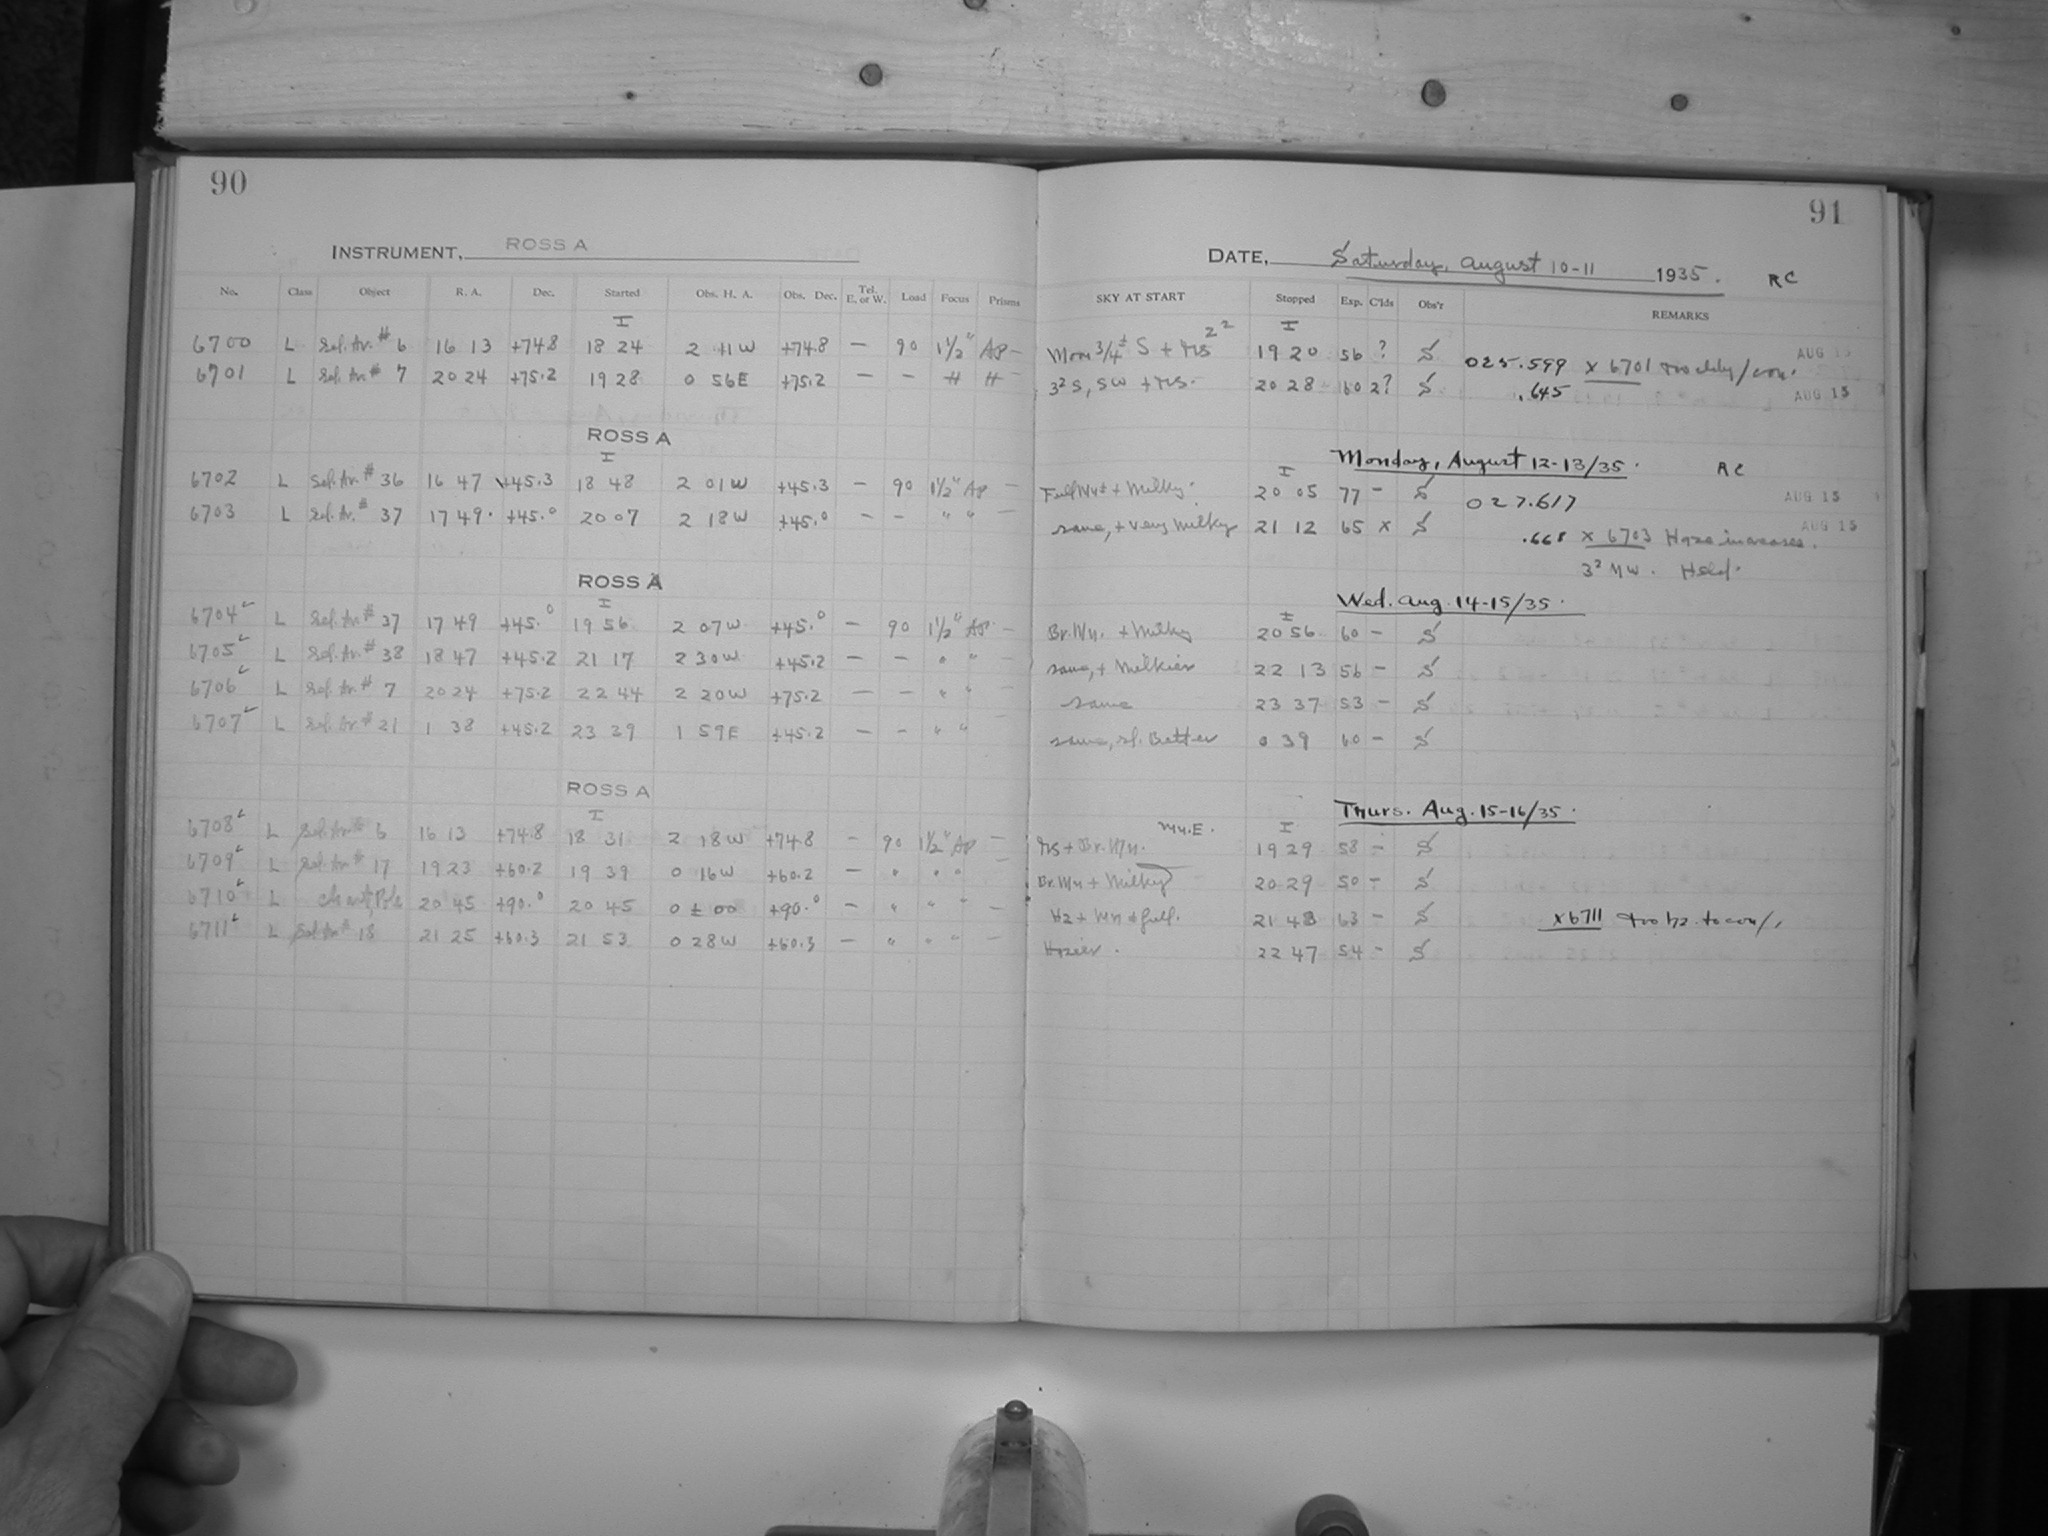 90
INSTRUMENT, ROSS A
No. Class Object R. A. Dec. Started Obs. H. A. Obs. Dec. Tel. E. or W. Load Focus Prisms
I
6700 L Sel. Ar. # 6 16 13 +74.8 18 24 2 11 W +74.8 — 90 1½" Ap —
6701 L Sel. Ar. # 7 20 24 +75.2 19 28 0 56 E +75.2 — — " "
ROSS A
I
6702 L Sel. Ar. # 36 16 47 +45.3 18 48 2 01 W +45.3 — 90 1½" Ap —
6703 L Sel. Ar. # 37 17 49 +45.0 20 07 2 18 W +45.0 — — " " —
ROSS A
I
6704 L Sel. Ar. # 37 17 49 +45.0 19 56 2 07 W +45.0 — 90 1½" Ap. —
6705 L Sel. Ar. # 38 18 47 +45.2 21 17 2 30 W +45.2 — — " " —
6706 L Sel. Ar. # 7 20 24 +75.2 22 44 2 20 W +75.2 — — " " —
6707 L Sel. Ar. # 21 1 38 +45.2 23 39 1 59 E +45.2 — — " " —
ROSS A
I
6708 L Sel. Ar. # 6 16 13 +74.8 18 31 2 18 W +74.8 — 90 1½" Ap —
6709 L Sel. Ar. # 17 19 23 +60.2 19 39 0 16 W +60.2 — " " " —
6710 L Pole 20 45 +90.0 20 45 0 ± 00 +90.0 — " " " —
6711 L Sel. Ar. # 18 21 25 +60.3 21 53 0 28 W +60.3 — " " " —
91
DATE, Saturday, August 10-11 1935. RC
SKY AT START Stopped Exp. C'lds Obs'r REMARKS
I
Moon ¾± S + 2² 19 20 56 ? S 025.599 x 6701 too AUG 15
3² S, SW + 20 28 60 2? S .645 AUG 15
Monday, August 12-13/35. RC
I
+ Milky. 20 05 77 – S 027.617 AUG 15
same, + very milky 21 12 65 x S .668 x 6703 Haze increases. AUG 15
3² NW. Held.
Wed. Aug. 14-15/35.
I
Br. Mn. + Milky 20 56 60 – S
same, + Milkier 22 13 56 – S
same 23 37 53 – S
same, sl. Better 0 39 60 – S
Thurs. Aug. 15-16/35.
Mn. E. I
+ Br. Mn. 19 29 58 – S
Br. Mn + Milky 20 29 50 – S
Hz + Mn + full. 21 48 63 – S x 6711 too hz. to con/.
Hazier. 22 47 54 – S